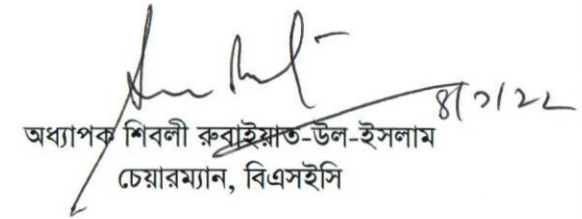 8/2/22
অধ্যাপক শিবলী রুবাইয়াত-উল-ইসলাম
চেয়ারম্যান, বিএসইসি